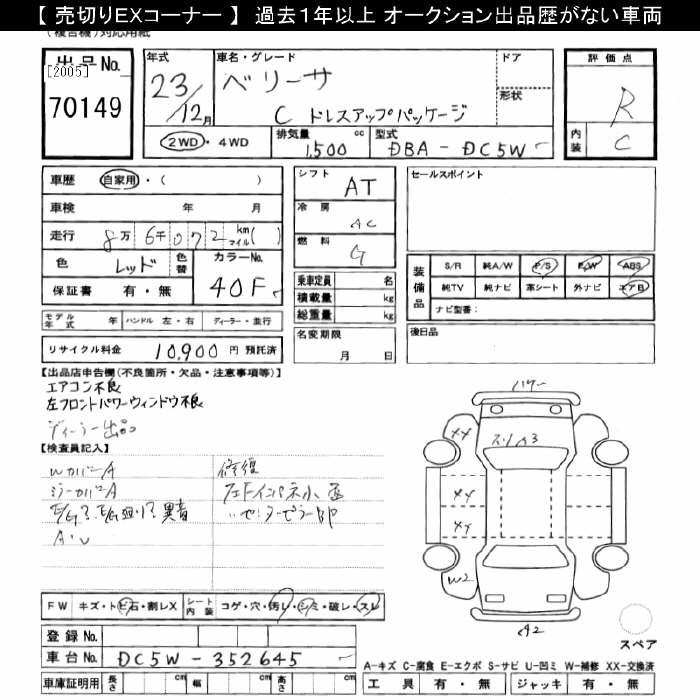 【 売切りEXコーナー 】 過去1年以上 オークション出品歴がない車両
出品No.
[2005]
70149
年式
23/12月
車名・グレード
ベリーサ
C ドレスアップパッケージ
ドア
形状
評価点
R
内装
C
2WD・4WD
排気量 1,500 cc
型式 DBA - DC5W
車歴 自家用・( )
車検 年 月
走行 8万 6千 0 7 2 km マイル ( )
色 レッド 色替
カラーNo. 40F
保証書 有・無
モデル年式 年 ハンドル 左・右 ディーラー・並行
リサイクル料金 10,900 円 預託済
シフト AT
冷房 AC
燃料 G
乗車定員 名
積載量 kg
総重量 kg
名変期限
月 日
セールスポイント
装備品
S/R 純A/W P/S P/W ABS
純TV 純ナビ 革シート 外ナビ エアB
ナビ型番:
後日品
【出品店申告欄(不良箇所・欠品・注意事項等)】
エアコン不良
左フロントパワーウィンドウ不良
ディーラー出品
【検査員記入】
WカバーA
ミラーカバーA
異音
A・U
修復
XX
XX
XX
W2
A2
FW キズ・トビ石・割レX
シート内装 コゲ・穴・汚レ・シミ・破レ・スレ
登録No.
車台No. DC5W - 352645
車庫証明用 長さ cm 幅 cm 高さ cm
スペア
A-キズ C-腐食 E-エクボ S-サビ U-凹ミ W-補修 XX-交換済
工具 有・無 ジャッキ 有・無